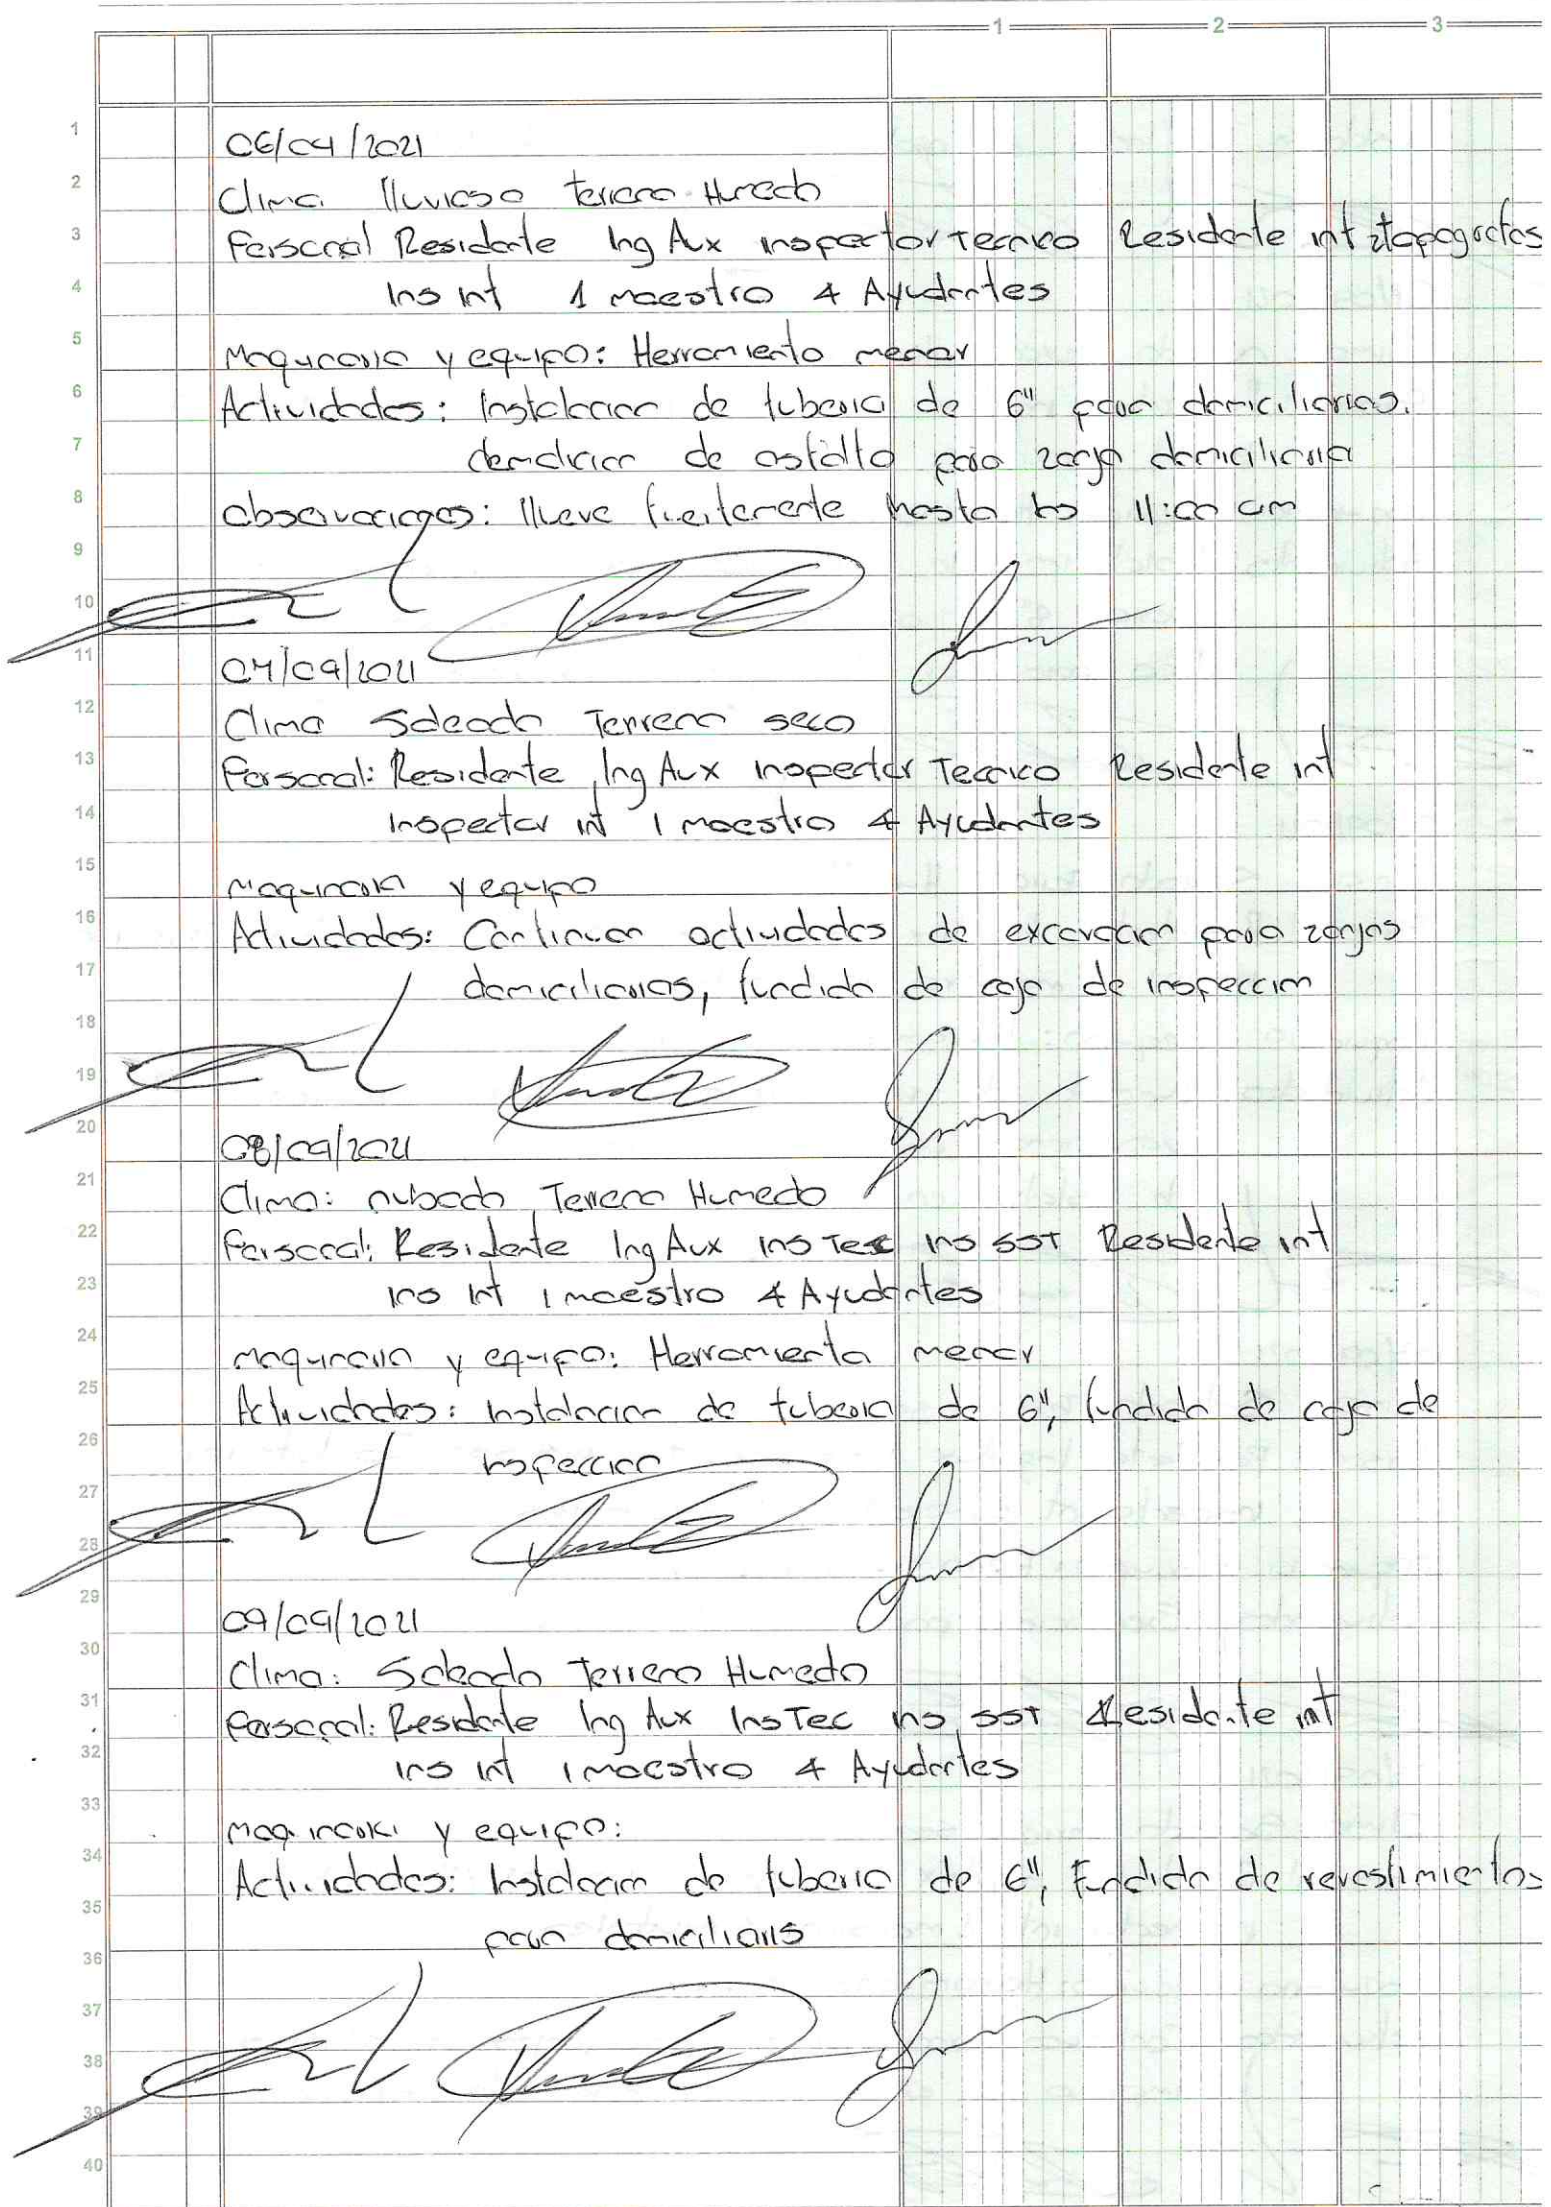 1 2 3
1 06/04/2021
2 Clima lluvioso terreno Humedo
3 Personal Residente Ing Aux inspector Tecnico Residente int 2 topografos
4 Ins int 1 maestro 4 Ayudantes
5 Maquinaria y equipo: Herramienta menor
6 Actividades: Instalacion de tuberia de 6" para domiciliarias.
7 demolicion de asfalto para zanja domiciliaria
8 Observaciones: llueve fuertemente hasta las 11:00 am
9
10
11 07/09/2021
12 Clima Soleado Terreno seco
13 Personal: Residente Ing Aux inspector Tecnico Residente int
14 Inspector int 1 maestro 4 Ayudantes
15 Maquinaria y equipo
16 Actividades: Continuan actividades de excavacion para zanjas
17 domiciliarias, fundida de caja de inspeccion
18
19
20 08/09/2021
21 Clima: nublado Terreno Humedo
22 Personal: Residente Ing Aux Ins Tec Ins SST Residente int
23 Ins int 1 maestro 4 Ayudantes
24 Maquinaria y equipo: Herramienta menor
25 Actividades: Instalacion de tuberia de 6", fundida de caja de
26 inspeccion
27
28
29 09/09/2021
30 Clima: Soleado Terreno Humedo
31 Personal: Residente Ing Aux Ins Tec Ins SST Residente int
32 Ins int 1 maestro 4 Ayudantes
33 Maquinaria y equipo:
34 Actividades: Instalacion de tuberia de 6", Fundida de revestimientos
35 para domiciliarias
36
37
38
39
40